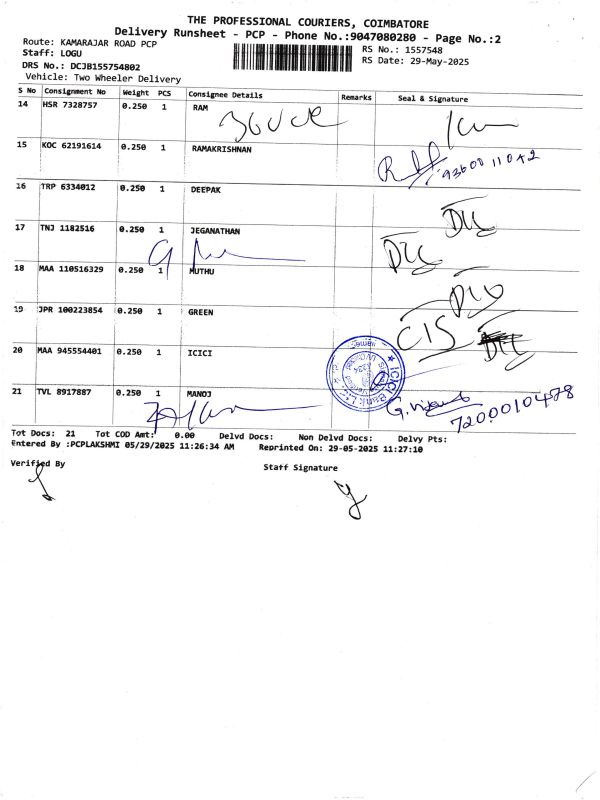 THE PROFESSIONAL COURIERS, COIMBATORE
Delivery Runsheet - PCP - Phone No.:9047080280 - Page No.:2
Route: KAMARAJAR ROAD PCP
RS No.: 1557548
Staff: LOGU
RS Date: 29-May-2025
DRS No.: DCJB155754802
Vehicle: Two Wheeler Delivery
S No Consignment No Weight PCS Consignee Details Remarks Seal & Signature
14 HSR 7328757 0.250 1 RAM
15 KOC 62191614 0.250 1 RAMAKRISHNAN
9360011042
16 TRP 6334012 0.250 1 DEEPAK
17 TNJ 1182516 0.250 1 JEGANATHAN
18 MAA 110516329 0.250 1 MUTHU
19 JPR 100223854 0.250 1 GREEN
CIS
20 MAA 945554401 0.250 1 ICICI
ICICI Bank
21 TVL 8917887 0.250 1 MANOJ
7200010478
Tot Docs: 21 Tot COD Amt: 0.00 Delvd Docs: Non Delvd Docs: Delvy Pts:
Entered By :PCPLAKSHMI 05/29/2025 11:26:34 AM Reprinted On: 29-05-2025 11:27:10
Verified By
Staff Signature